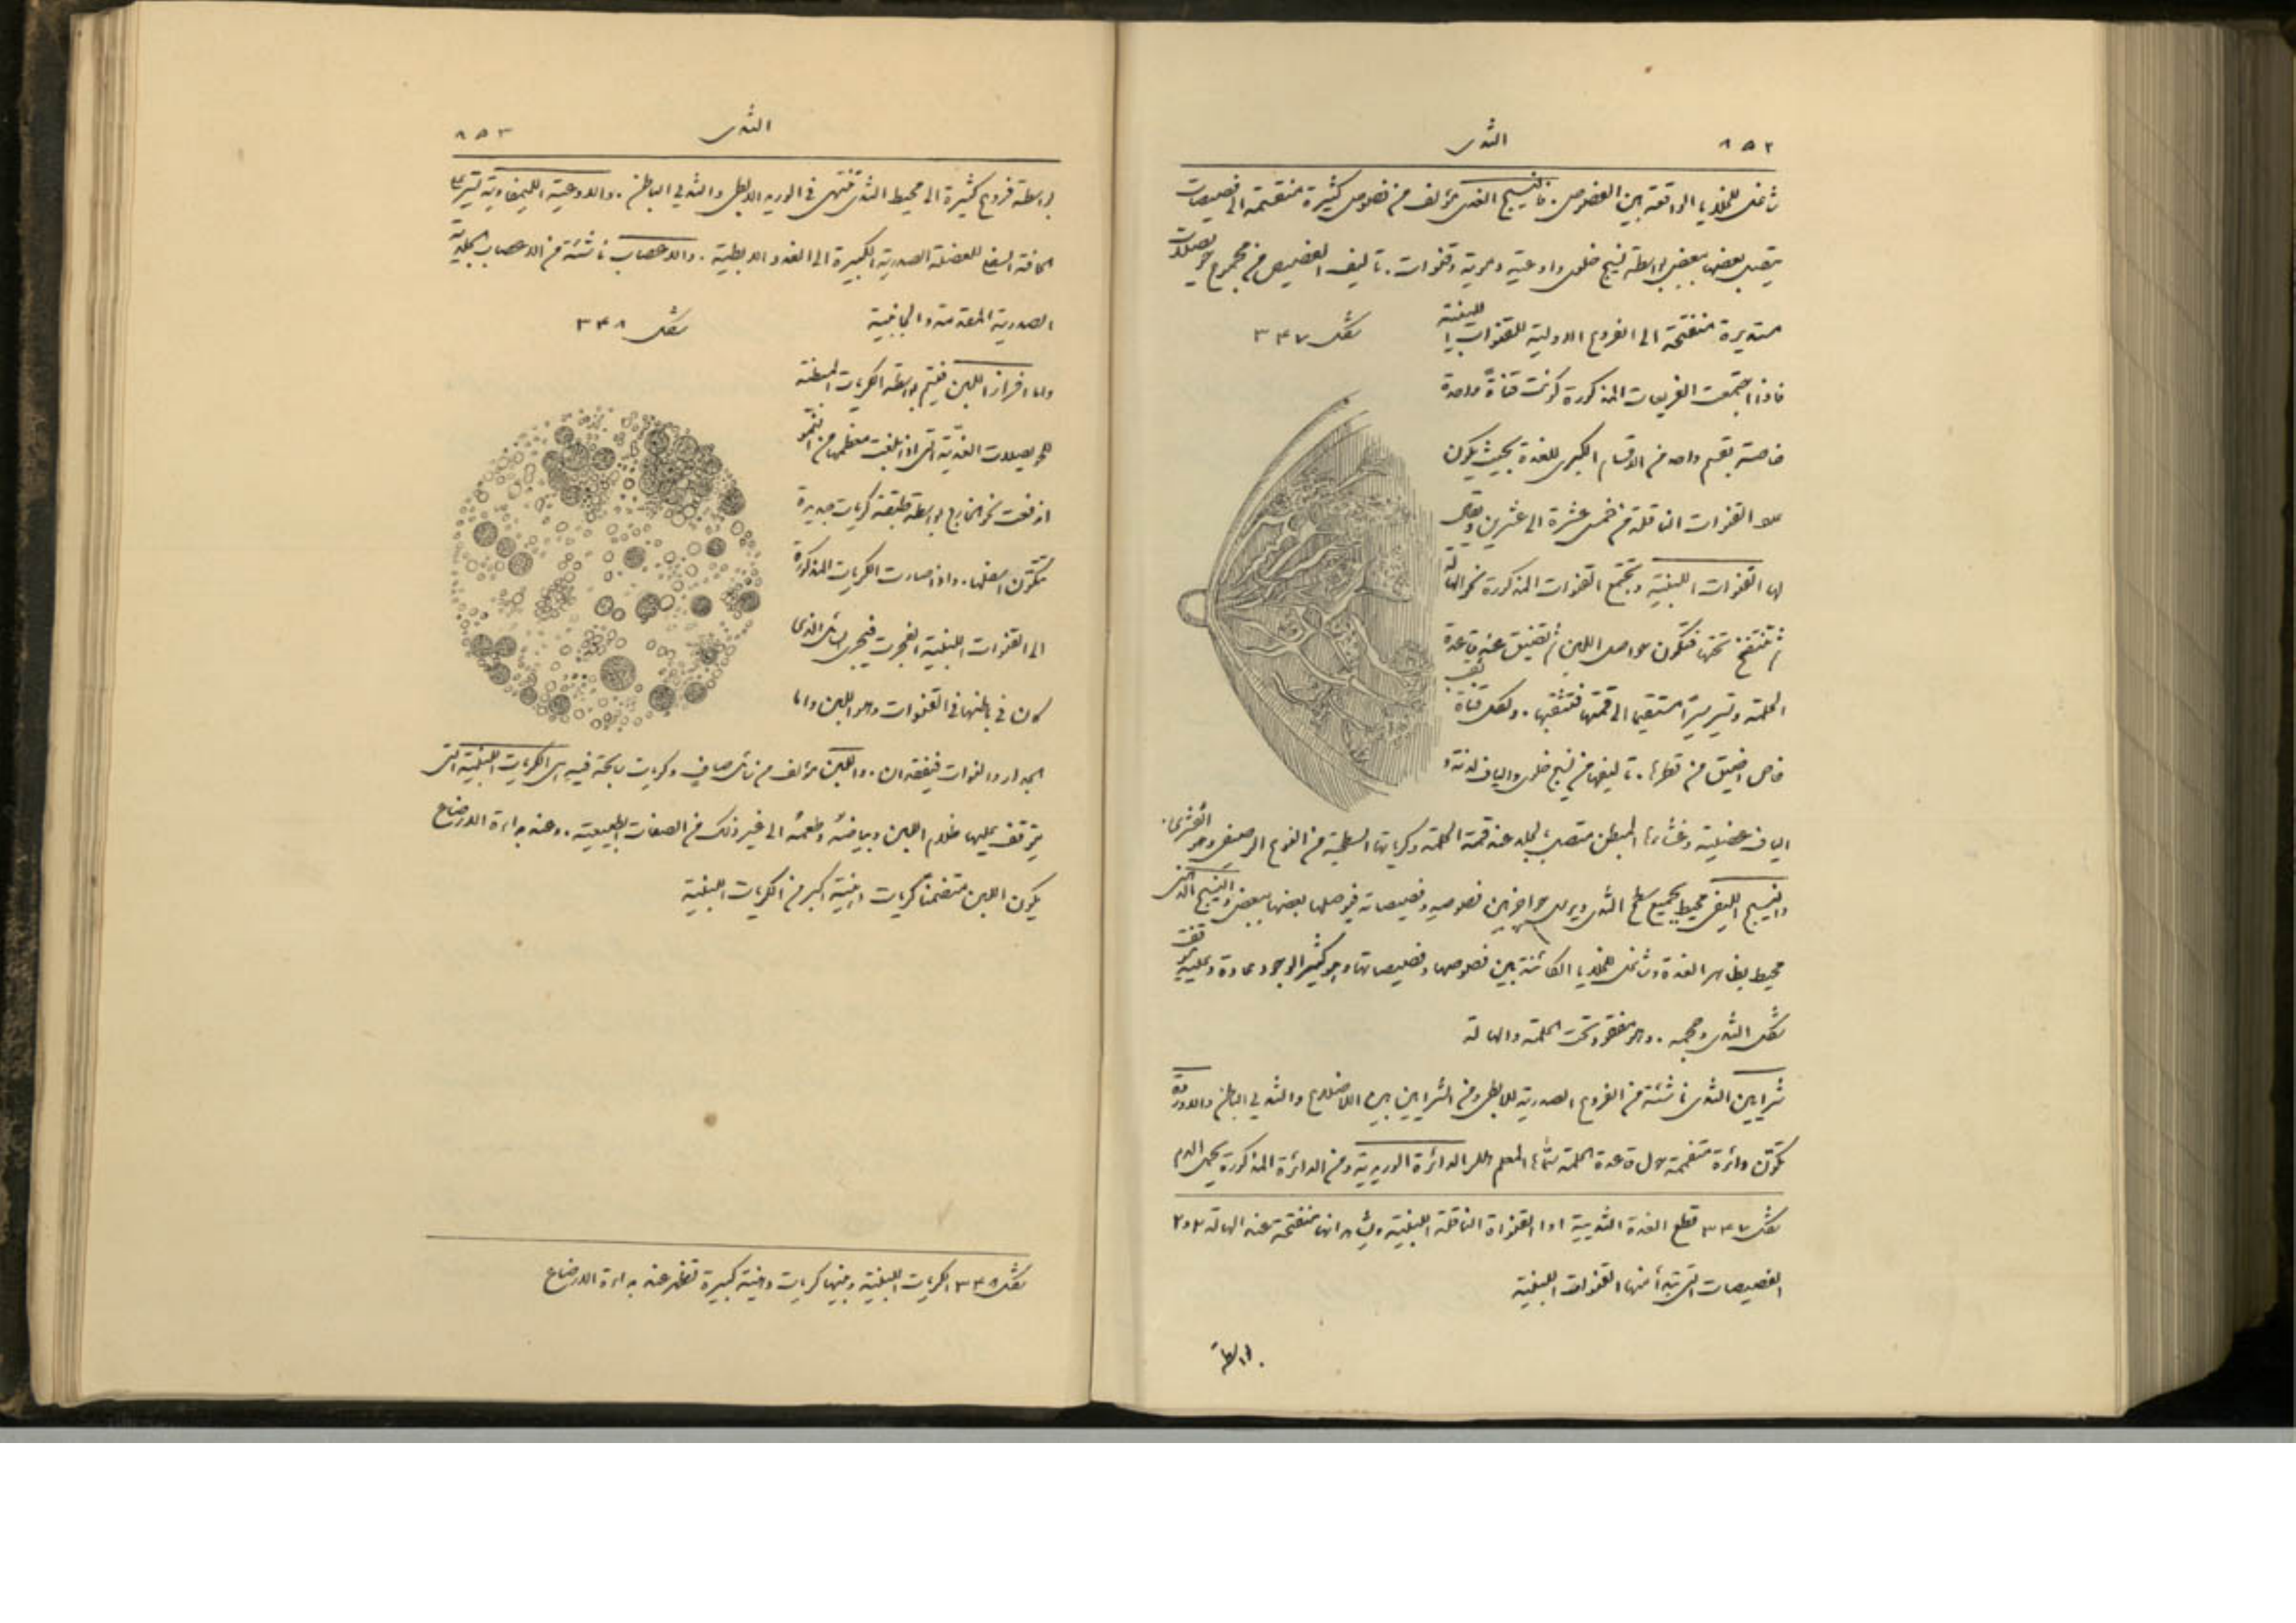 ٨٥٢
الثدى
شاغل للخلايا الواقعة بين الفصوص . فالنسيج الغدى مؤلف من فصوص كثيرة منقسمة الى فصيصات
يتصل بعضها ببعض بواسطة نسيج خلوى واوعية دموية وقنوات . تاليف الفصيص من مجموع حويصلات
مستديرة منفتحة الى الفروع الاولية للقنوات اللبنية
شكل ٣٤٧
فاذا اجتمعت الفريعات المذكورة كونت قناةً واحدة
خاصة بقسم واحد من الاقسام الكبرى للغدة بحيث يكون
القنوات الناقلة من خمس عشرة الى عشرين ويقال
لها القنوات اللبنية وتجتمع القنوات المذكورة نحو الهالة
ثم تنتفخ تحتها فتكون حواصل اللبن ثم تضيق عند قاعدة
الحلمة وتسير سيرًا مستقيما الى قمتها فتثقبها . ولكل قناة ثقب
خاص اضيق من قطرها . تاليفها من نسيج خلوى والياف لدنة و
الياف عضلية وغشاءها المبطن متصل بالجلد عند قمة الحلمة وكرياتها السطحية من النوع الرصيفى وهو القشرى .
والنسيج الليفى محيط بجميع سطح الثدى ويرسل حواجز بين فصوصه وفصيصاته فيوصلها بعضها ببعض والنسيج الدهنى
محيط بظاهر الغدة وشاغل للخلايا الكائنة بين فصوصها وفصيصاتها وهو كثير الوجود عادة وعليه يتوقف
شكل الثدى وحجمه . وهو مفقود تحت الحلمة والهالة
شرايين الثدى ناشئة من الفروع الصدرية للابطى ومن الشرايين بين الاضلاع والثديى الباطن والاوردة
تكوّن دائرة متفممة حول قاعدة الحلمة سمّاها المعلم هللر الدائرة الوريدية ومن الدائرة المذكورة يحمل الدم
شكل ٣٤٧ قطع الغدة الثديية ١ و١ القنواة الناقلة اللبنية ويشاهد انها منفتحة عند الهالة ٢ و٢
الفصيصات التى تبدأ منها القنوات اللبنية
بواسطة
٨٥٣
الثدى
بواسطة فروع كثيرة الى محيط الثدى تنتهى فى الوريد الابطى والثديى الباطن . والاوعية الليمفاوية تسير على
الحافة السفلى للعضلة الصدرية الكبيرة الى الغدد الابطية . والاعصاب ناشئة من الاعصاب الجلدية
الصدرية المقدمة والجانبية
شكل ٣٤٨
واما افراز اللبن فيتم بواسطة الكريات المبطنة
للحويصلات الغدّية التى اذا بلغت معظمها من النمو
اندفعت نحو الخارج بواسطة طبقة كريات جديدة
تتكوّن اسفلها . واذا صارت الكريات المذكورة
الى القنوات اللبنية انفجرت فيجرى السائل الذى
كان فى باطنها فى القنوات وهو اللبن واما
الجدار والنوات فيفقدان . واللبن مؤلف من سائل صافٍ وكريات سابحة فيه هى الكريات اللبنية التى
يتوقف عليها ظلام اللبن وبياضهُ وطعمهُ الى غير ذلك من الصفات الطبيعية . وعند بداءة الارضاع
يكون اللبن متضمنًا كريات دهنية اكبر من الكريات اللبنية
شكل ٣٤٨ الكريات اللبنية وبينها كريات دهنية كبيرة تظهر عند بداءة الارضاع